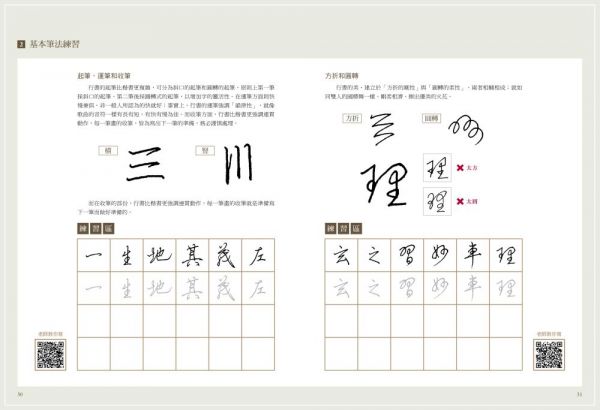 2 基本筆法練習
起筆、運筆和收筆
行書的起筆比楷書更複雜，可分為斜口的起筆和圓轉的起筆。原則上第一筆
採斜口的起筆，第二筆後採圓轉式的起筆，以增加字的靈活性。在運筆方面則快
慢兼俱，非一般人所認為的快就好；事實上，行書的運筆強調「韻律性」，就像
歌曲的音符一樣有長有短，有快有慢為佳。而收筆方面，行書比楷書更強調連貫
動作，每一筆畫的收筆，皆為寫出下一筆的準備，務必謹慎處理。
橫
三
豎
川
而在收筆的部份，行書比楷書更強調連貫動作，每一筆畫的收筆就是準備寫
下一筆而做好準備的。
練習區
一 生 地 其 茂 左
一 生 地 其 茂 左
老師教你寫
30
方折和圓轉
行書的美，建立於「方折的剛性」與「圓轉的柔性」，兩者相輔相成；就如
同雙人的國標舞一樣，剛柔相濟，擦出優美的火花。
方折
圓轉
理
理 太方
理 太圓
練習區
玄 之 習 妙 車 理
玄 之 習 妙 車 理
老師教你寫
31